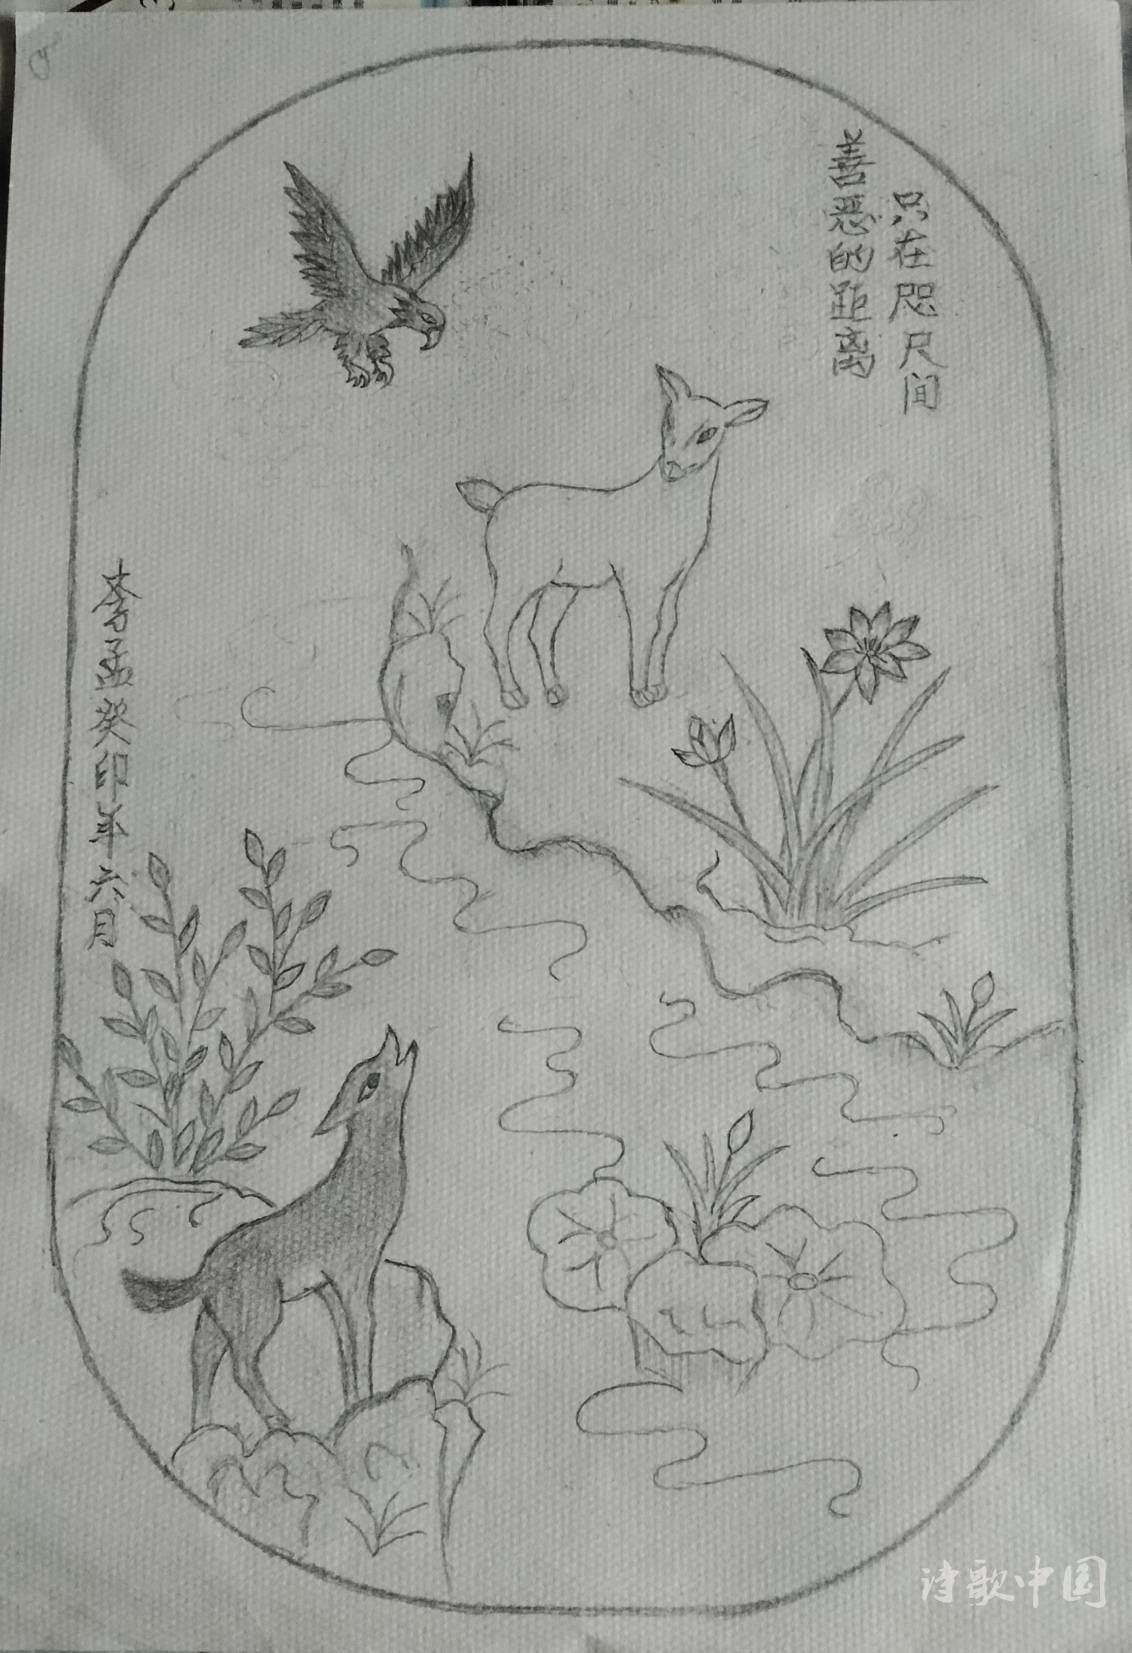 善恶的距离
只在咫尺间
李孟癸印年六月
诗歌中国